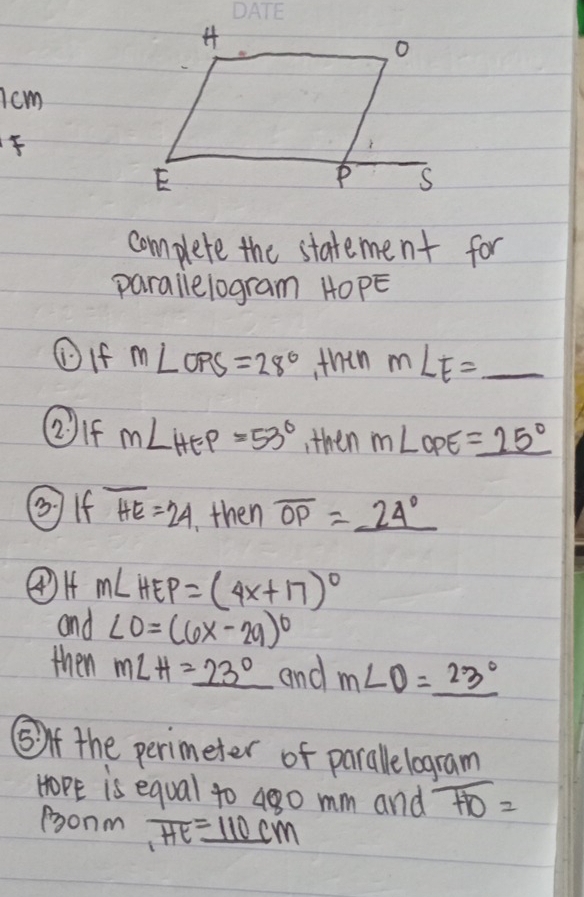 DATE
H O
1cm
F
E P S
Complete the statement for
parallelogram HOPE
① If m∠OPS = 28°, then m∠E = ___
② If m∠HEP = 53°, then m∠OPE = 25°
③ If HE = 24, then OP = 24°
④ If m∠HEP = (4x+17)°
and ∠O = (6x-29)°
then m∠H = 23° and m∠O = 23°
⑤ If the perimeter of parallelogram
HOPE is equal to 480 mm and HO =
130nm, HE = 110 cm